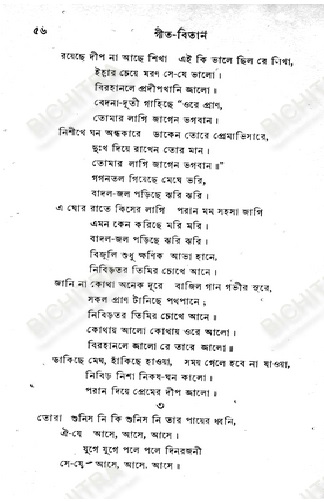 ৫৬ গীত-বিতান
রয়েছে দীপ না আছে শিখা এই কি ভালে ছিল রে লিখা,
ইহার চেয়ে মরণ সে-যে ভালো।
বিরহানলে প্রদীপখানি জ্বালো।
বেদনা-দূতী গাহিছে "ওরে প্রাণ,
তোমার লাগি জাগেন ভগবান।
নিশীথে ঘন অন্ধকারে ডাকেন তোরে প্রেমাভিসারে,
দুঃখ দিয়ে রাখেন তোর মান।
তোমার লাগি জাগেন ভগবান॥"
গগনতল গিয়েছে মেঘে ভরি,
বাদল-জল পড়িছে ঝরি ঝরি।
এ ঘোর রাতে কিসের লাগি পরান মম সহসা জাগি
এমন কেন করিছে মরি মরি।
বাদল-জল পড়িছে ঝরি ঝরি।
বিজুলি শুধু ক্ষণিক আভা হানে,
নিবিড়তর তিমির চোখে আনে।
জানি না কোথা অনেক দূরে বাজিল গান গভীর সুরে,
সকল প্রাণ টানিছে পথপানে।
নিবিড়তর তিমির চোখে আনে।
কোথায় আলো কোথায় ওরে আলো।
বিরহানলে জ্বালো রে তারে জ্বালো॥
ডাকিছে মেঘ, হাঁকিছে হাওয়া, সময় গেলে হবে না যাওয়া,
নিবিড় নিশা নিকষ-ঘন কালো।
পরান দিয়ে প্রেমের দীপ জ্বালো॥
৩
তোরা শুনিস নি কি শুনিস নি তার পায়ের ধ্বনি,
ঐ-যে আসে, আসে, আসে।
যুগে যুগে পলে পলে দিনরজনী
সে-যে আসে, আসে, আসে॥